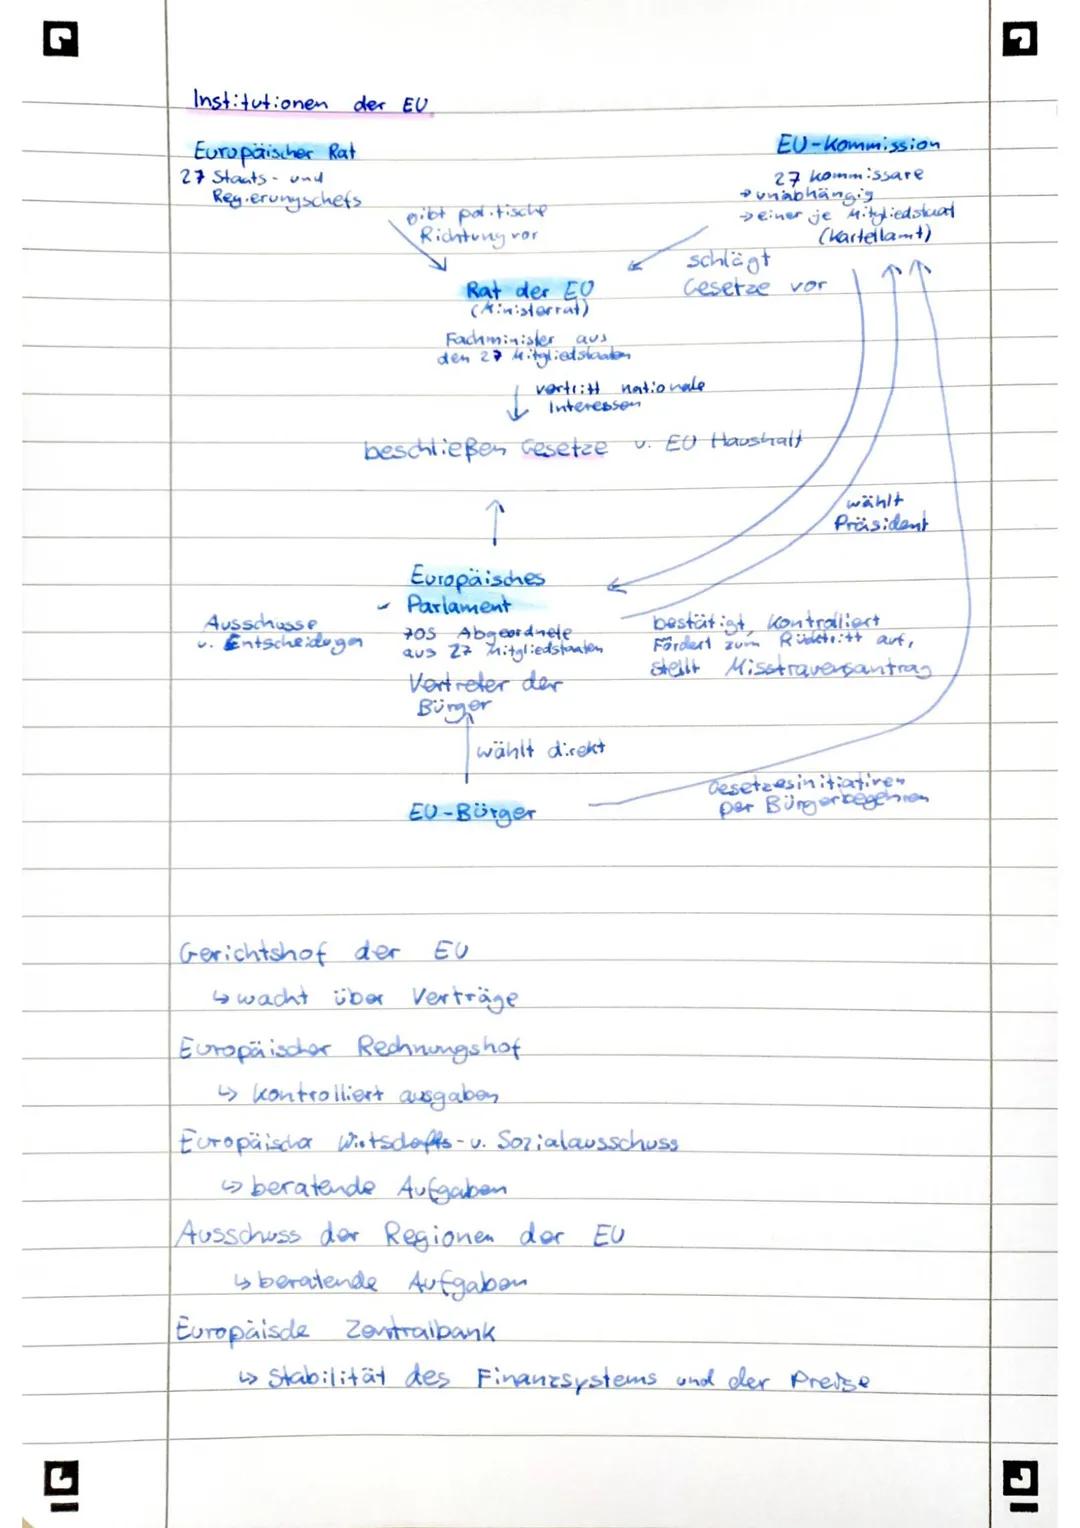 Institutionen der EU
Europäischer Rat
27 Staats- und
Regierungschefs
gibt politische
Richtung vor
EU-Kommission
27 Kommissare
→ unabhängig
→ einer je Mitgliedstaat
(Kartellamt)
schlägt
Gesetze vor
Rat der EU
(Ministerrat)
Fachminister aus
den 27 Mitgliedstaaten
vertritt nationale
Interessen
beschließen Gesetze u. EU Haushalt
wählt
Präsident
Europäisches
Parlament
705 Abgeordnete
aus 27 Mitgliedstaaten
Vertreter der
Bürger
Ausschusse
u. Entscheidugen
bestätigt, kontrolliert
Fördert zum Rücktritt auf,
stellt Misstrauensantrag
wählt direkt
EU-Bürger
Gesetzesinitiativen
per Bürgerbegehren
Gerichtshof der EU
↳ wacht über Verträge
Europäischer Rechnungshof
↳ kontrolliert ausgaben
Europäischer Wirtschafts- u. Sozialausschuss
↳ beratende Aufgaben
Ausschuss der Regionen der EU
↳ beratende Aufgaben
Europäische Zentralbank
↳ Stabilität des Finanzsystems und der Preise